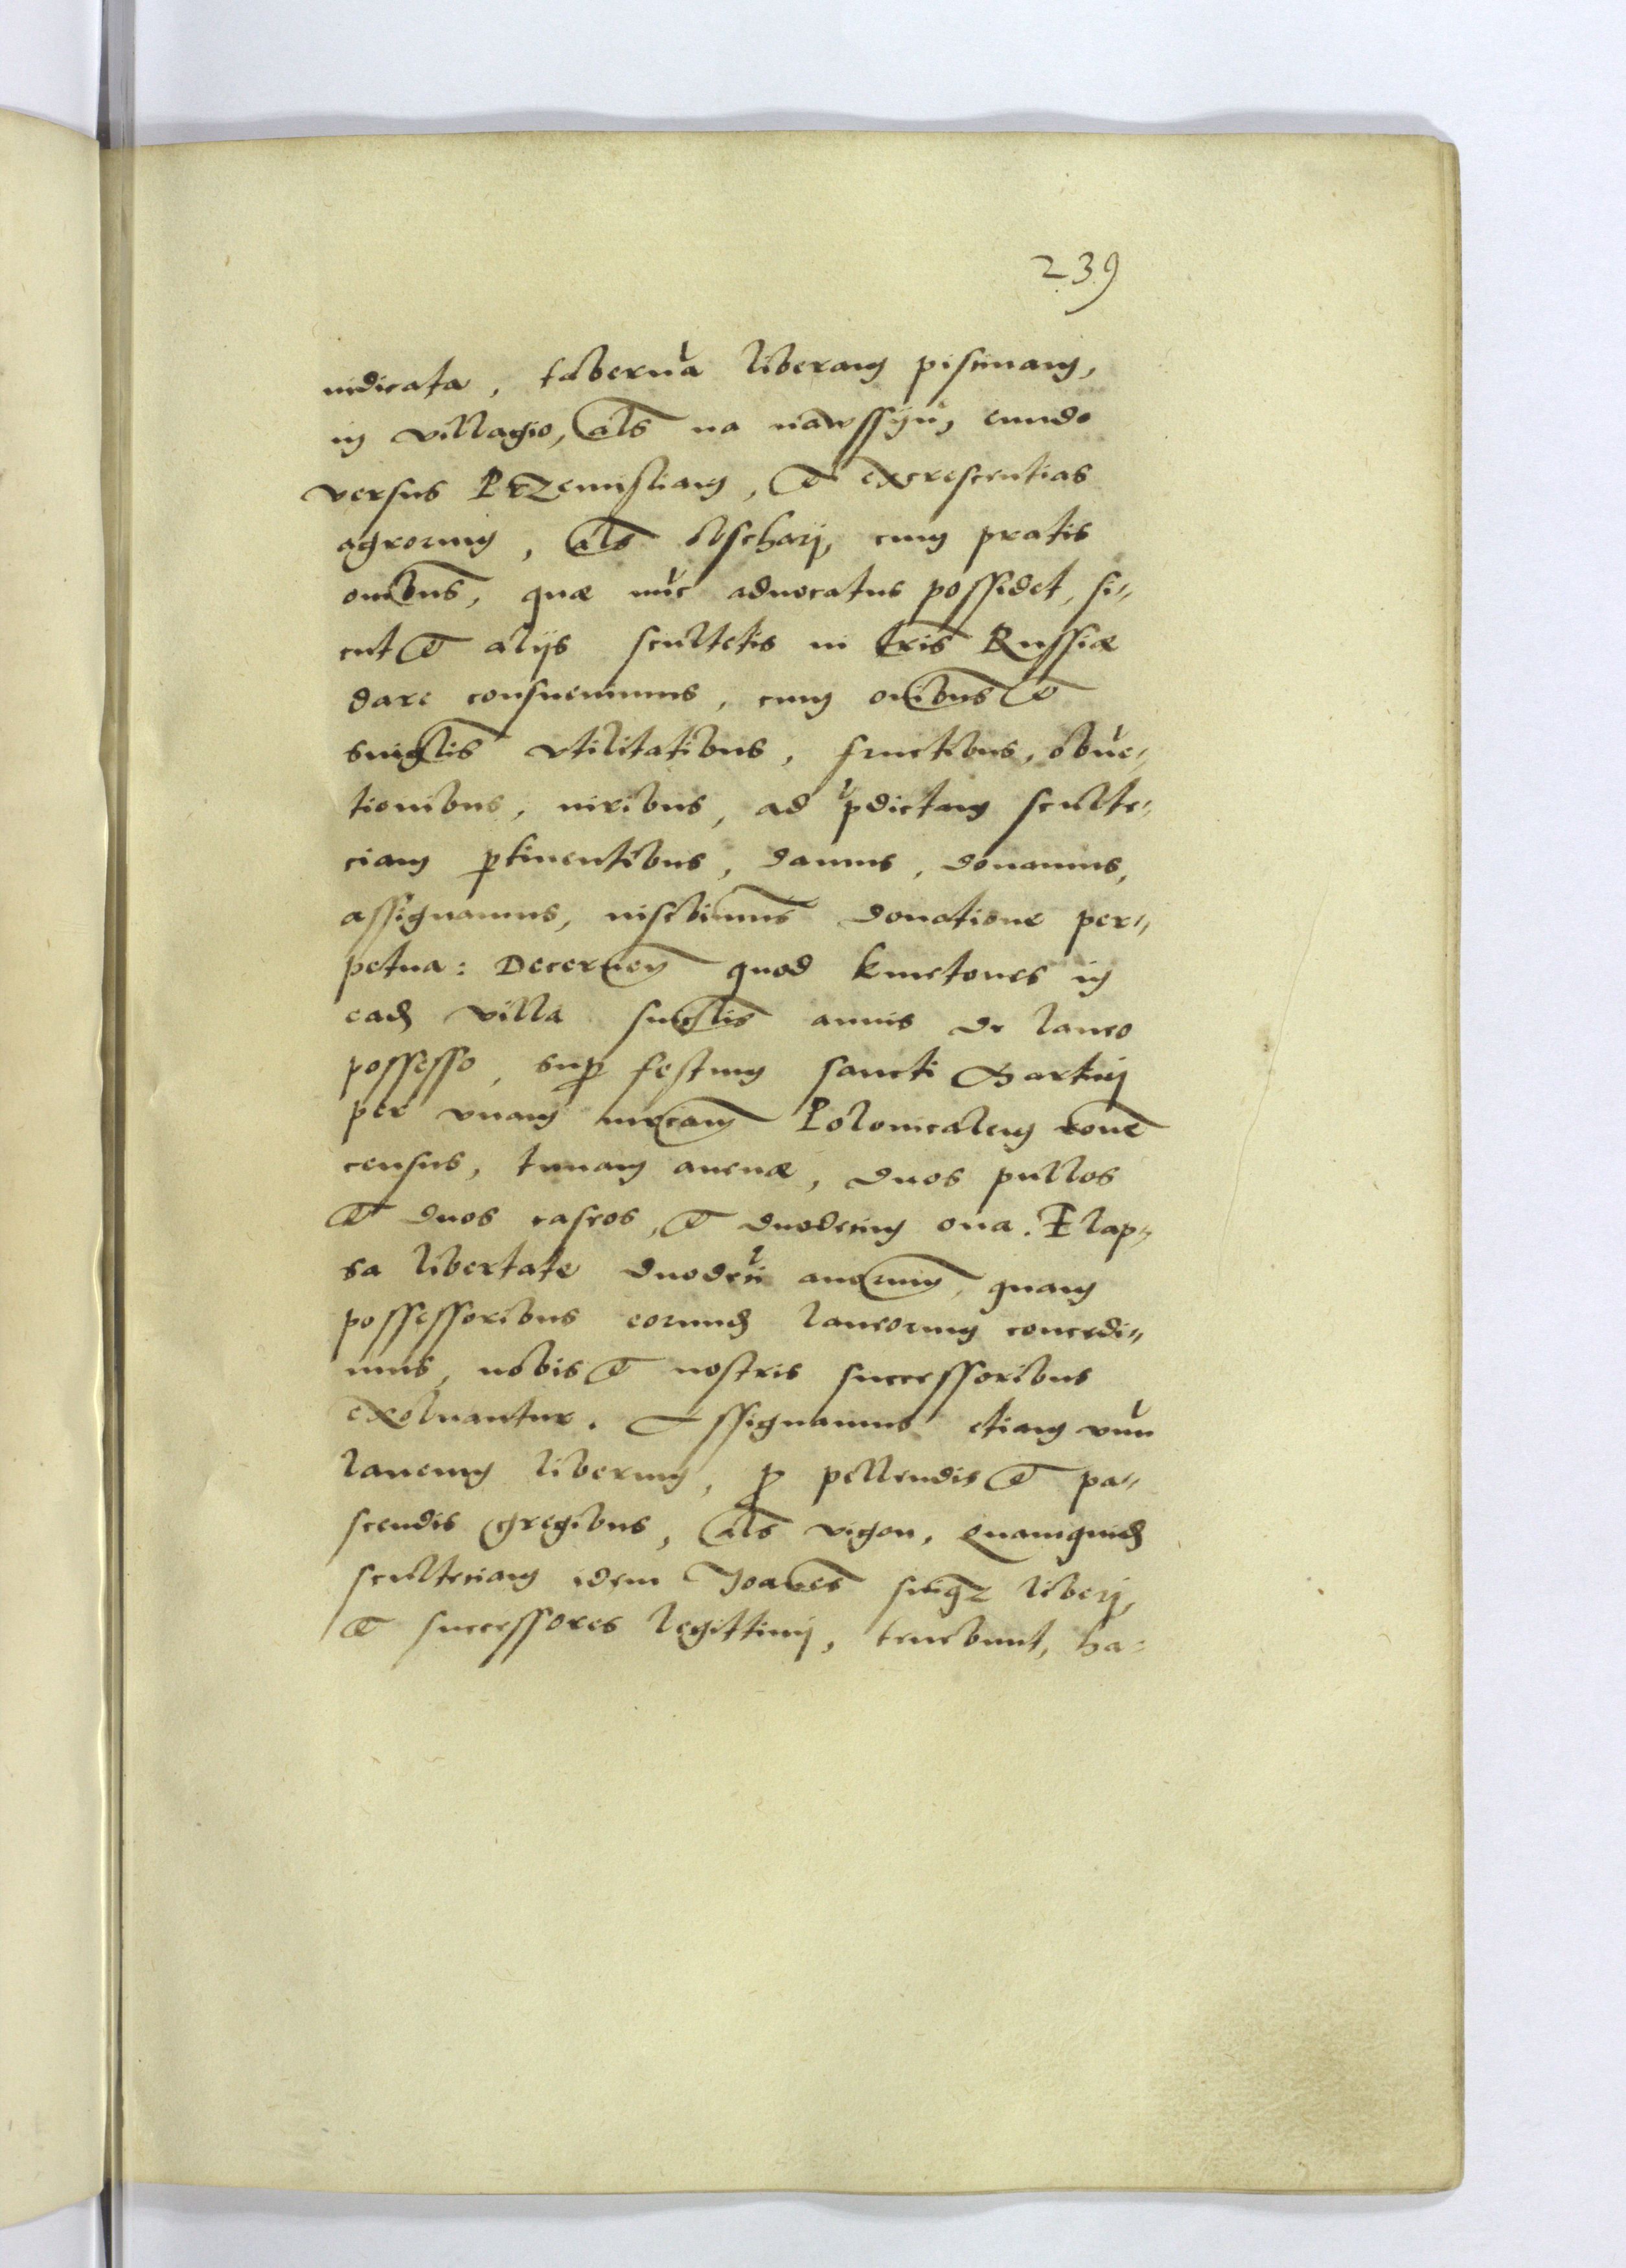 239
iudicata, taberna͂ liberam piscinam,
in villagio, al͂s na nawssyu, eundo
versus Przemisliam, et excrescentias
agrorum, al͂s obscharij, cum pratis
om͂ibus, quæ nu͂c aduocatus possidet, si„
cut et alijs scultetis in t͂ris Russiæ
dare consueuimus, cum om͂ibus et
singl͂is vtilitatibus, fructibus, obue͂„
tionibus, iuribus, ad p͂dictam sculte„
ciam ꝑtinentibus, damus, donamus,
assignamus, inscbimus͂ donatione per„
petua: Decernen͂ quod kmetones in
ead͂ villa singl͂is annis de laneo
possesso, suꝑ festum sancti Martinj
per vnam mrcam͂ Polonicalem ro͂ne
census, tunam auenæ, duos pullos
et duos caseos, et duodecim oua. Elap„
sa libertate duode͂ci annorum͂, quam
possessoribus eorund͂ laneorum concedi„
mus, nobis et nostris successoribus
exoluantur. Assignamus etiam vnu͂
laneum liberum, ꝓ pellendis et pa„
scendis gregibus, al͂s vigon, Quamquid͂
sculteciam idem Joan͂es suiqz liberj,
et successores legittimj, tenebunt, ha: